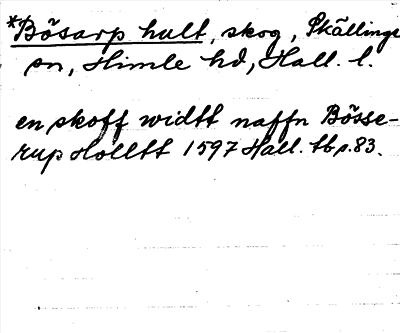 *Bösarp hult, skog, Skällinge
sn, Himle hd, Hall. l.
en skoff widtt naffn Bösse-
rup Holltt 1597 Hall. tb s. 83.